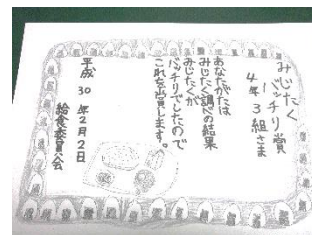 みじたく
バッチリ賞
4年3組さま
あなたがたは
みじたく調べの結果
みじたくが
バッチリでしたので
これを賞します。
平成30年2月2日
給食委員会